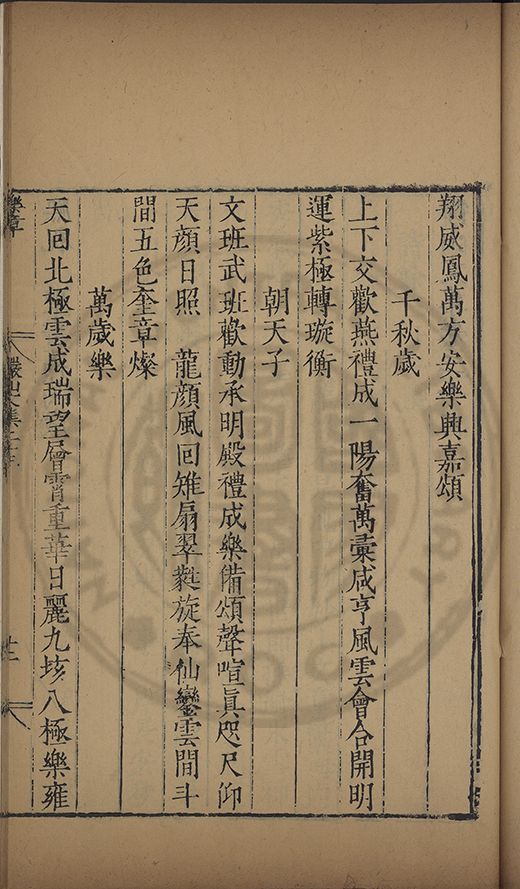 翔威鳳萬方安樂興嘉頌
千秋歲
上下交歡燕禮成一陽奮萬彙咸亨風雲會合開明
運紫極轉璇衡
朝天子
文班武班歡動承明殿禮成樂備頌聲喧真咫尺仰
天顏日照 龍顏風回雉扇翠蕤旋奉仙鑾雲間斗
間五色奎章燦
萬歲樂
天回北極雲成瑞望層霄重華日麗九垓八極樂雍
樂章